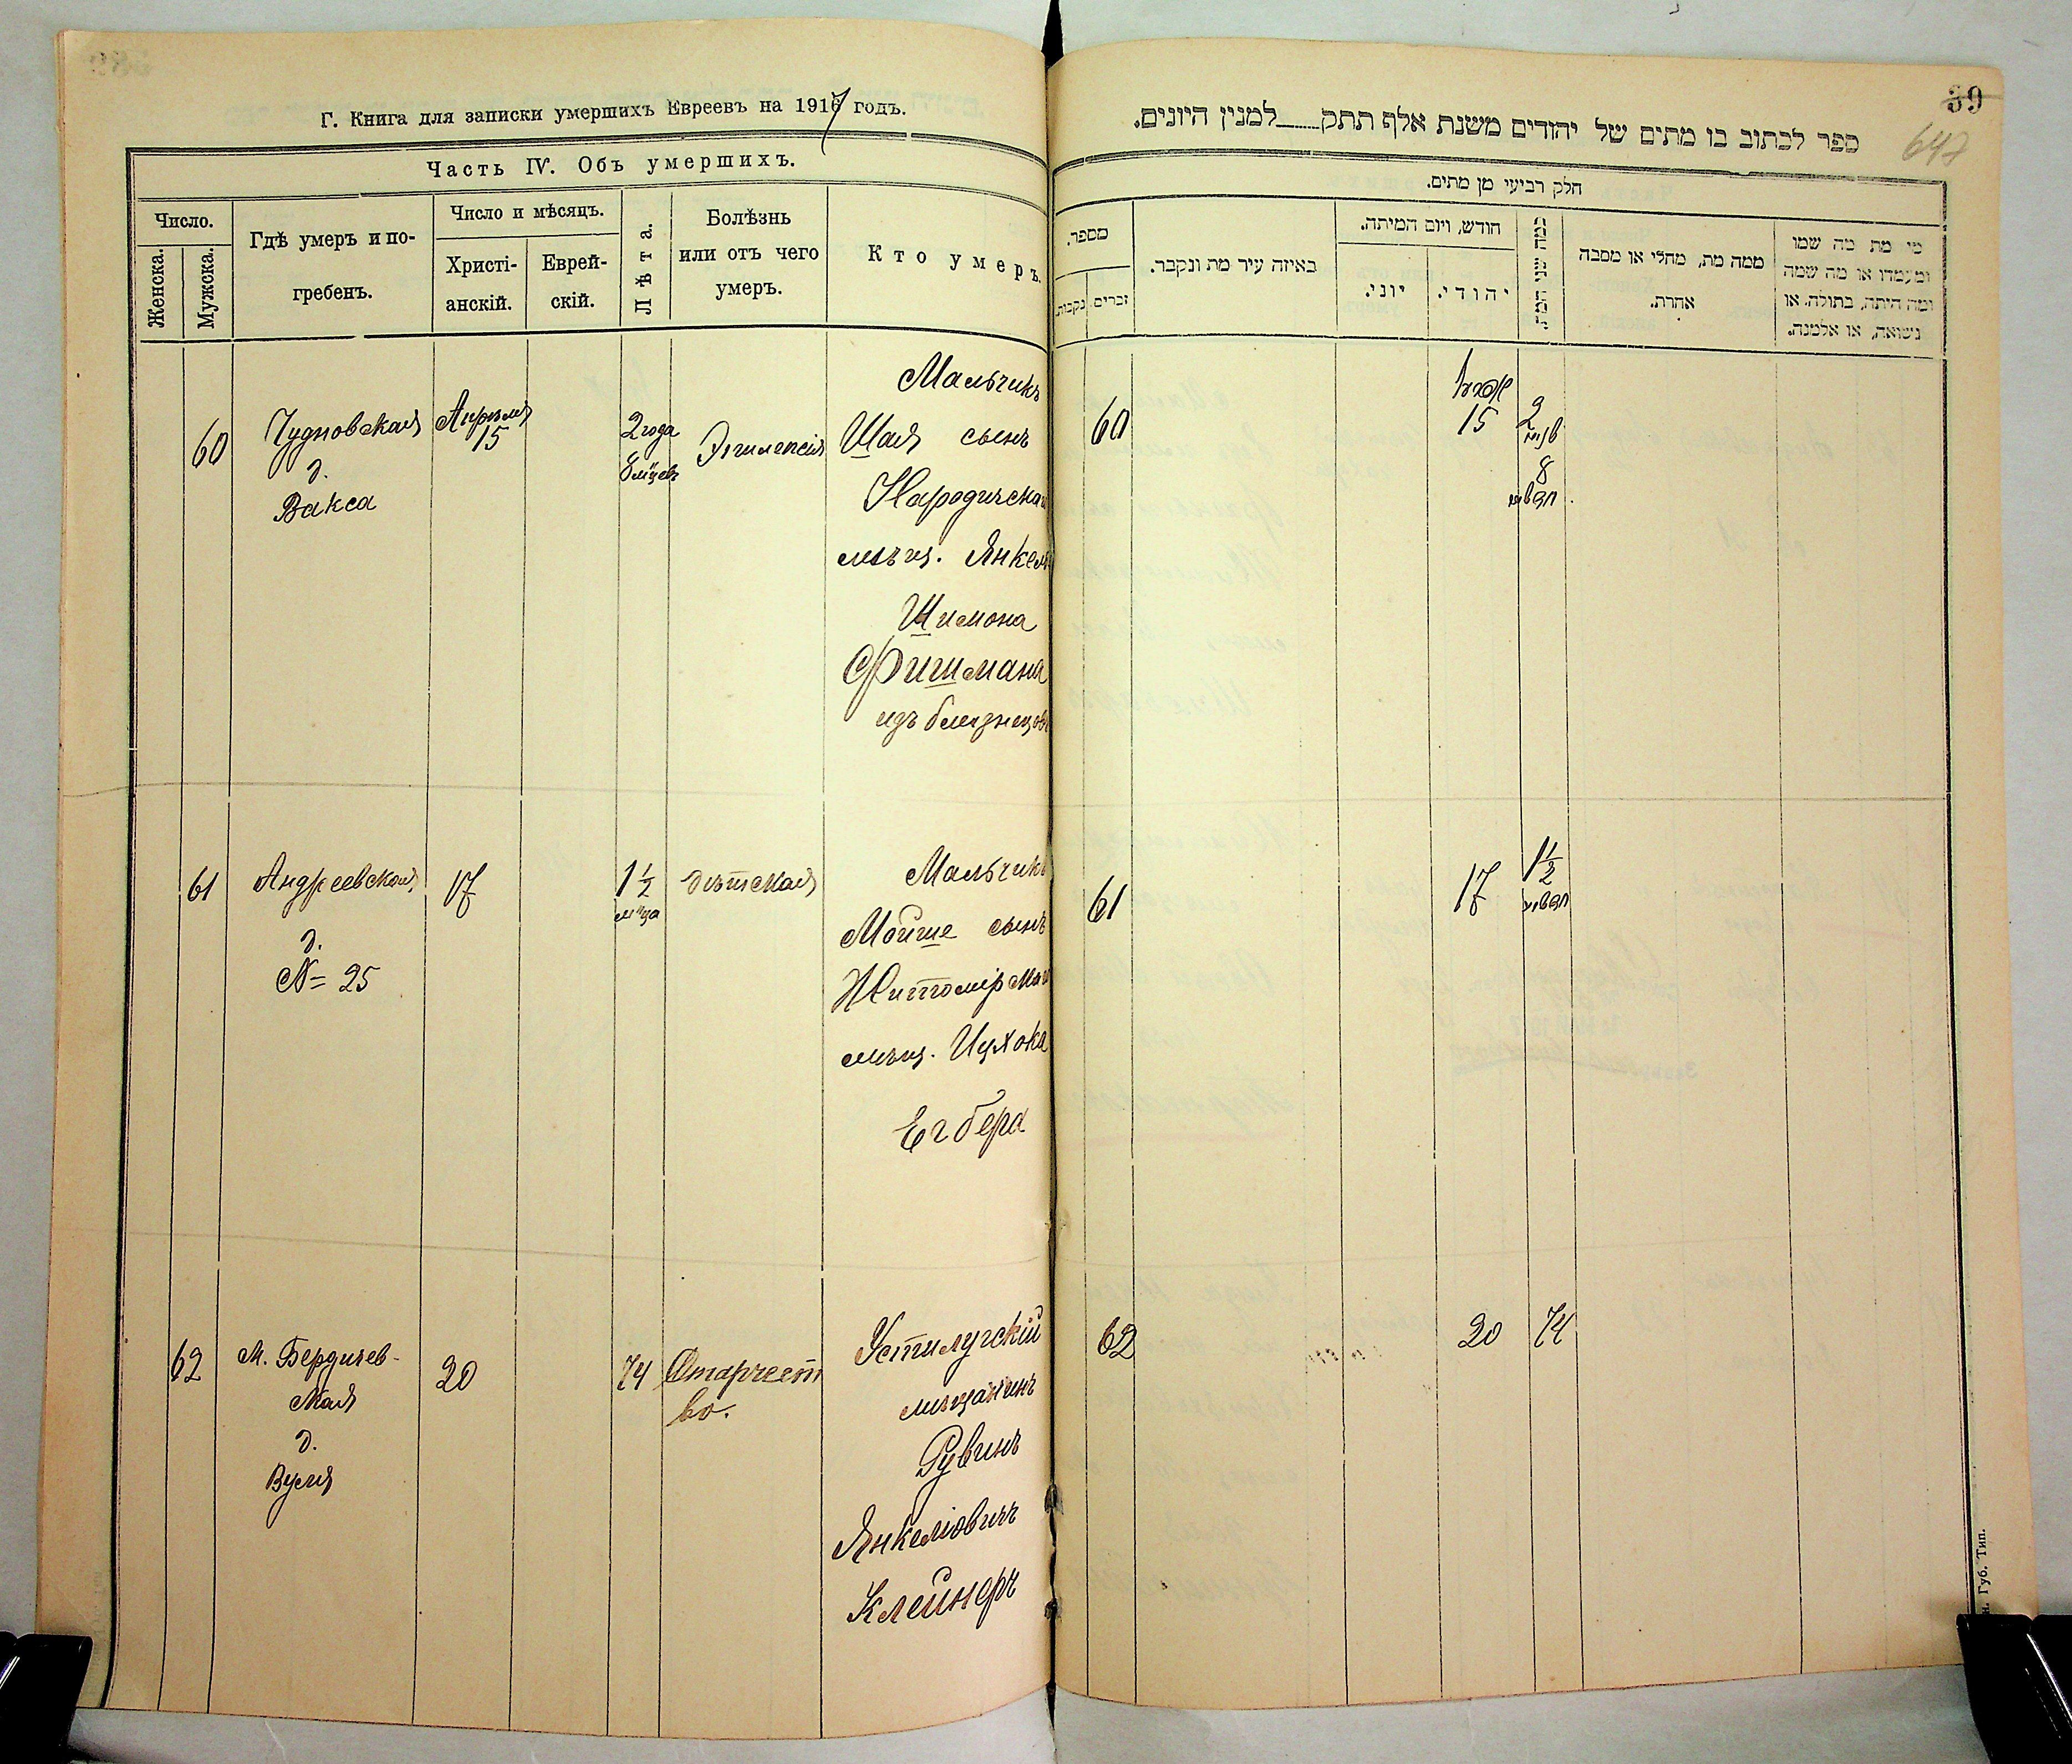 Г. Книга для записки умершихъ Евреевъ на 1917 годъ.
Часть IV. Объ умершихъ.
Число.
Женска.
Мужска.
Гдѣ умеръ и по-
гребенъ.
Число и мѣсяцъ.
Христі-
анскій.
Еврей-
скій.
Лѣта.
Болѣзнь
или отъ чего
умеръ.
Кто умеръ.
60
Чудновская
д.
Вакса
Апрѣля
15
2 года
8 мцевъ
Эпилепсія
Мальчикъ
Шая сынъ
Народическаго
мѣщ. Янкеля
Шимона
Фишмана
изъ близнецовъ
61
Андреевская
д.
№ 25
17
1 1/2
м-ца
дѣтская
Мальчикъ
Мойше сынъ
Житомірскаго
мѣщ. Ицхока
Егбера
62
М. Бердичев-
ская
д.
Вуля
20
74
Старчест
во.
Устилугскій
мѣщанинъ
Рувинъ
Янкеліовичъ
Клейнеръ
39
647
ספר לכתוב בו מתים של יהודים משנת אלף תתק____למנין היונים.
חלק רביעי מן מתים.
מספר.
נקבות.
זכרים
באיזה עיר מת ונקבר.
חודש, ויום המיתה.
יוני.
יהודי.
כמה שני המת.
ממה מת, מחלי או מסבה
אחרת.
מי מת מה שמו
ומעמדו או מה שמה
ומה היתה, בתולה, או
נשואה, או אלמנה.
60
15
2
שנים
8
חדשים
61
17
1 1/2
חדשים
62
20
74
Губ. Тип.